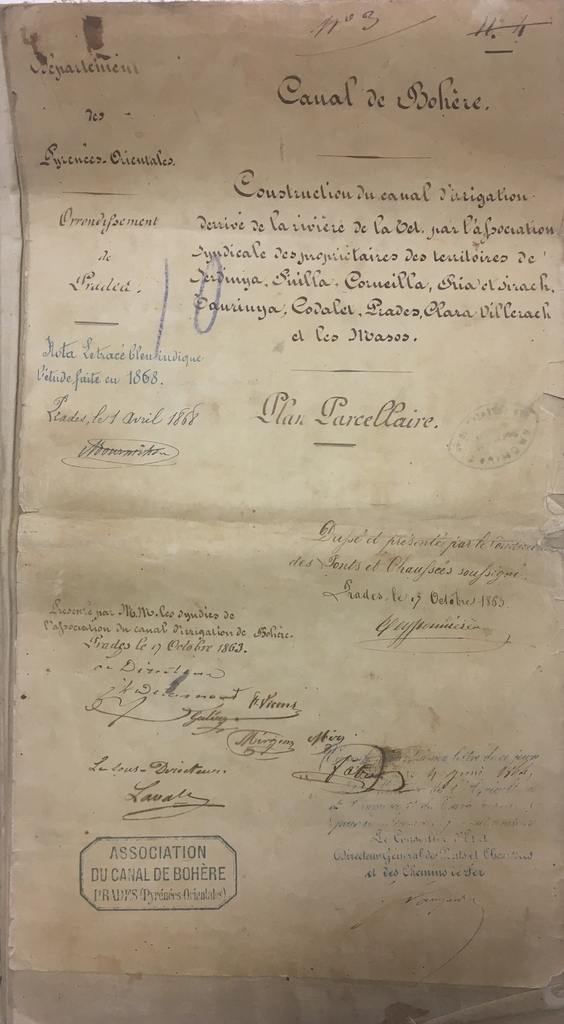 n° 3
N. 4
Département
des
Pyrénées-Orientales.
Arrondissement
de
Prades.
Canal de Bohère.
Construction du canal d'irrigation
dérivé de la rivière de la Tet, par l'association
syndicale des propriétaires des territoires de
Serdinya, Fuilla, Corneilla, Ria et Sirach,
Taurinya, Codalet, Prades, Clara Villerach
et les Masos.
10
Nota Le tracé bleu indique
l'étude faite en 1868.
Prades, le 1 avril 1868
Plan Parcellaire.
Dressé et présenté par le
des Ponts et Chaussées soussigné.
Prades, le 17 Octobre 1863
Présenté par M.M. les syndics de
l'association du canal d'irrigation de Bohère.
Prades le 17 Octobre 1863.
Le Directeur
F. Vicens
Le sous-Directeur.
lettre de ce jour
4 1864
Le Conseiller d'Etat
Directeur Général des Ponts et Chaussées
et des Chemins de Fer
ASSOCIATION
DU CANAL DE BOHÈRE
PRADES (Pyrénées-Orientales)